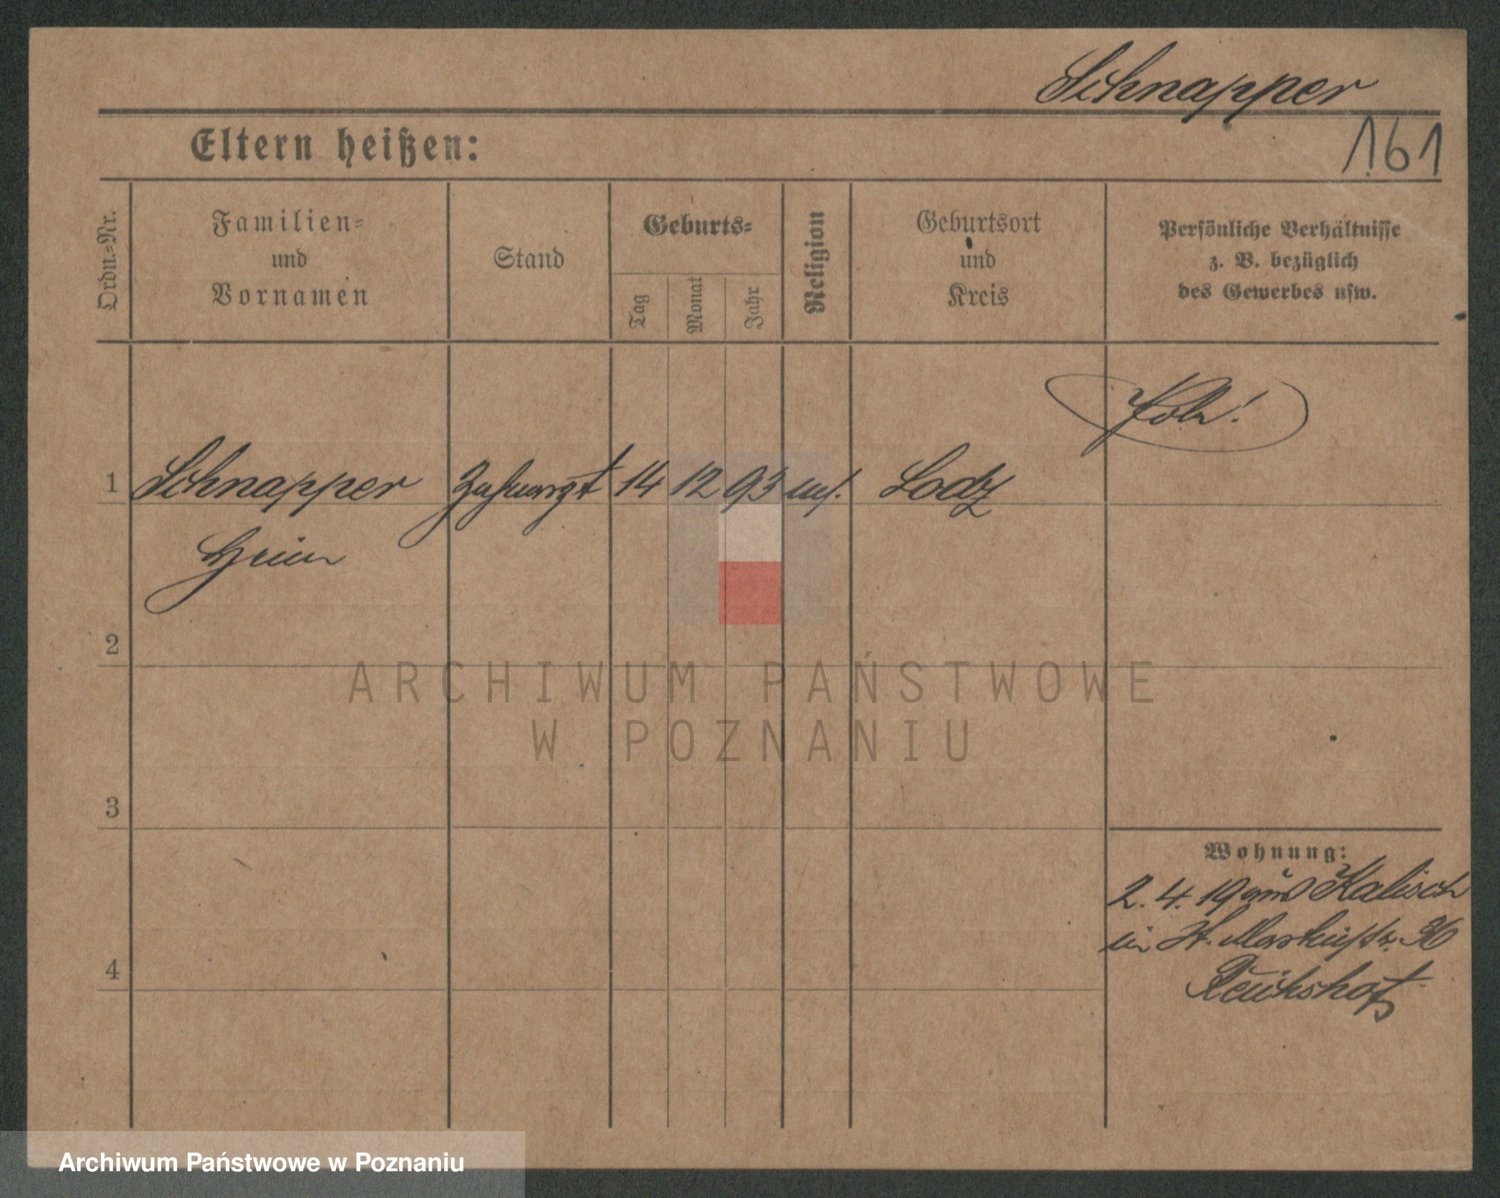 Schnapper
161
Eltern heißen:
Ordn.-Nr.
Familien-
und
Vornamen
Stand
Geburts-
Tag
Monat
Jahr
Religion
Geburtsort
und
Kreis
Persönliche Verhältnisse
z. B. bezüglich
des Gewerbes usw.
1 Schnapper Zahnarzt 14 12 93 Lodz
2
3
4
Wohnung:
2. 4. 19 aus Kalisch
in St. Martinstr. 36
Reichshof
ARCHIWUM PAŃSTWOWE
W POZNANIU
Archiwum Państwowe w Poznaniu